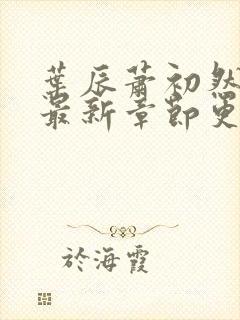 葉辰蕭初然
最新章節更
於海霞